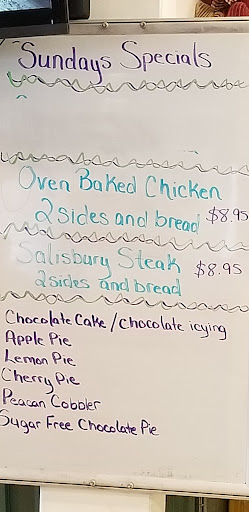 Sundays Specials
Oven Baked Chicken
2 sides and bread $8.95
Salisbury Steak $8.95
2 sides and bread
Chocolate Cake / Chocolate icying
Apple Pie
Lemon Pie
Cherry Pie
Peacan Cobbler
Sugar Free Chocolate Pie